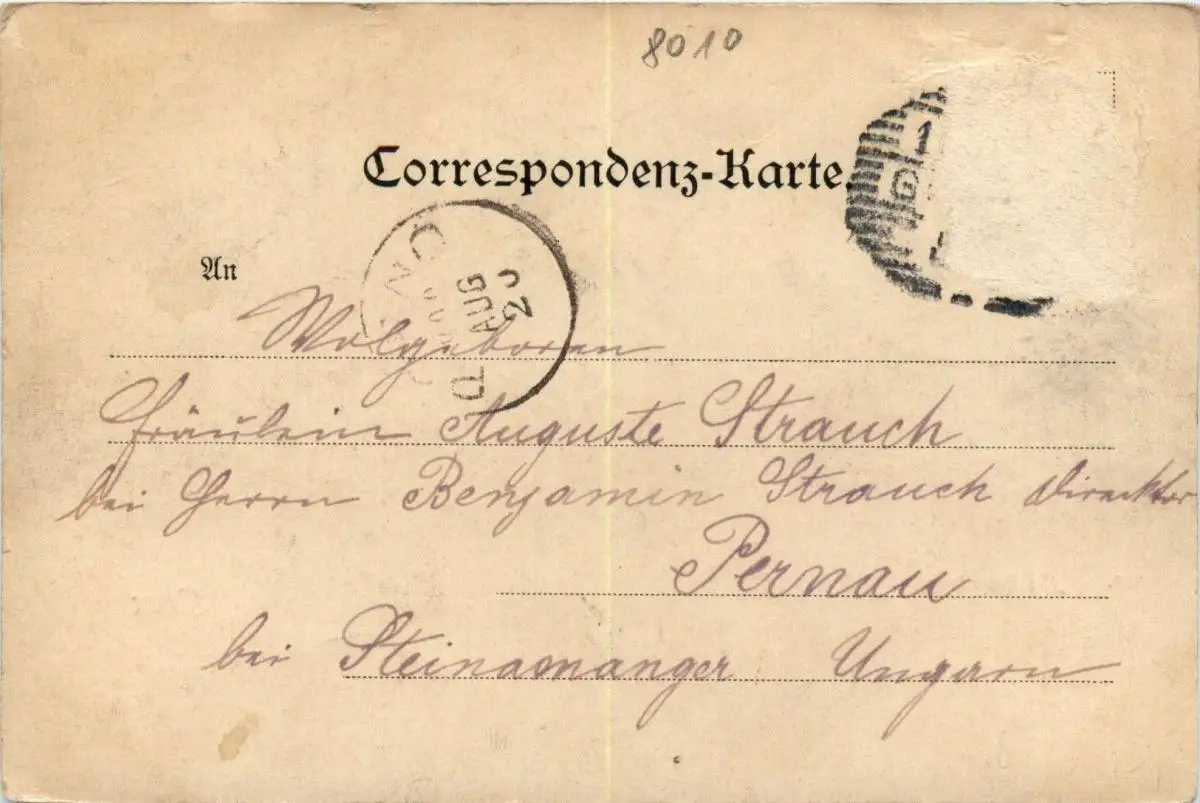 8010
Correspondenz-Karte.
An
AUG
Wolgeboren
Fräulein Auguste Strauch
bei Herrn Benjamin Strauch Direcktor
Pernau
bei Steinamanger Ungarn